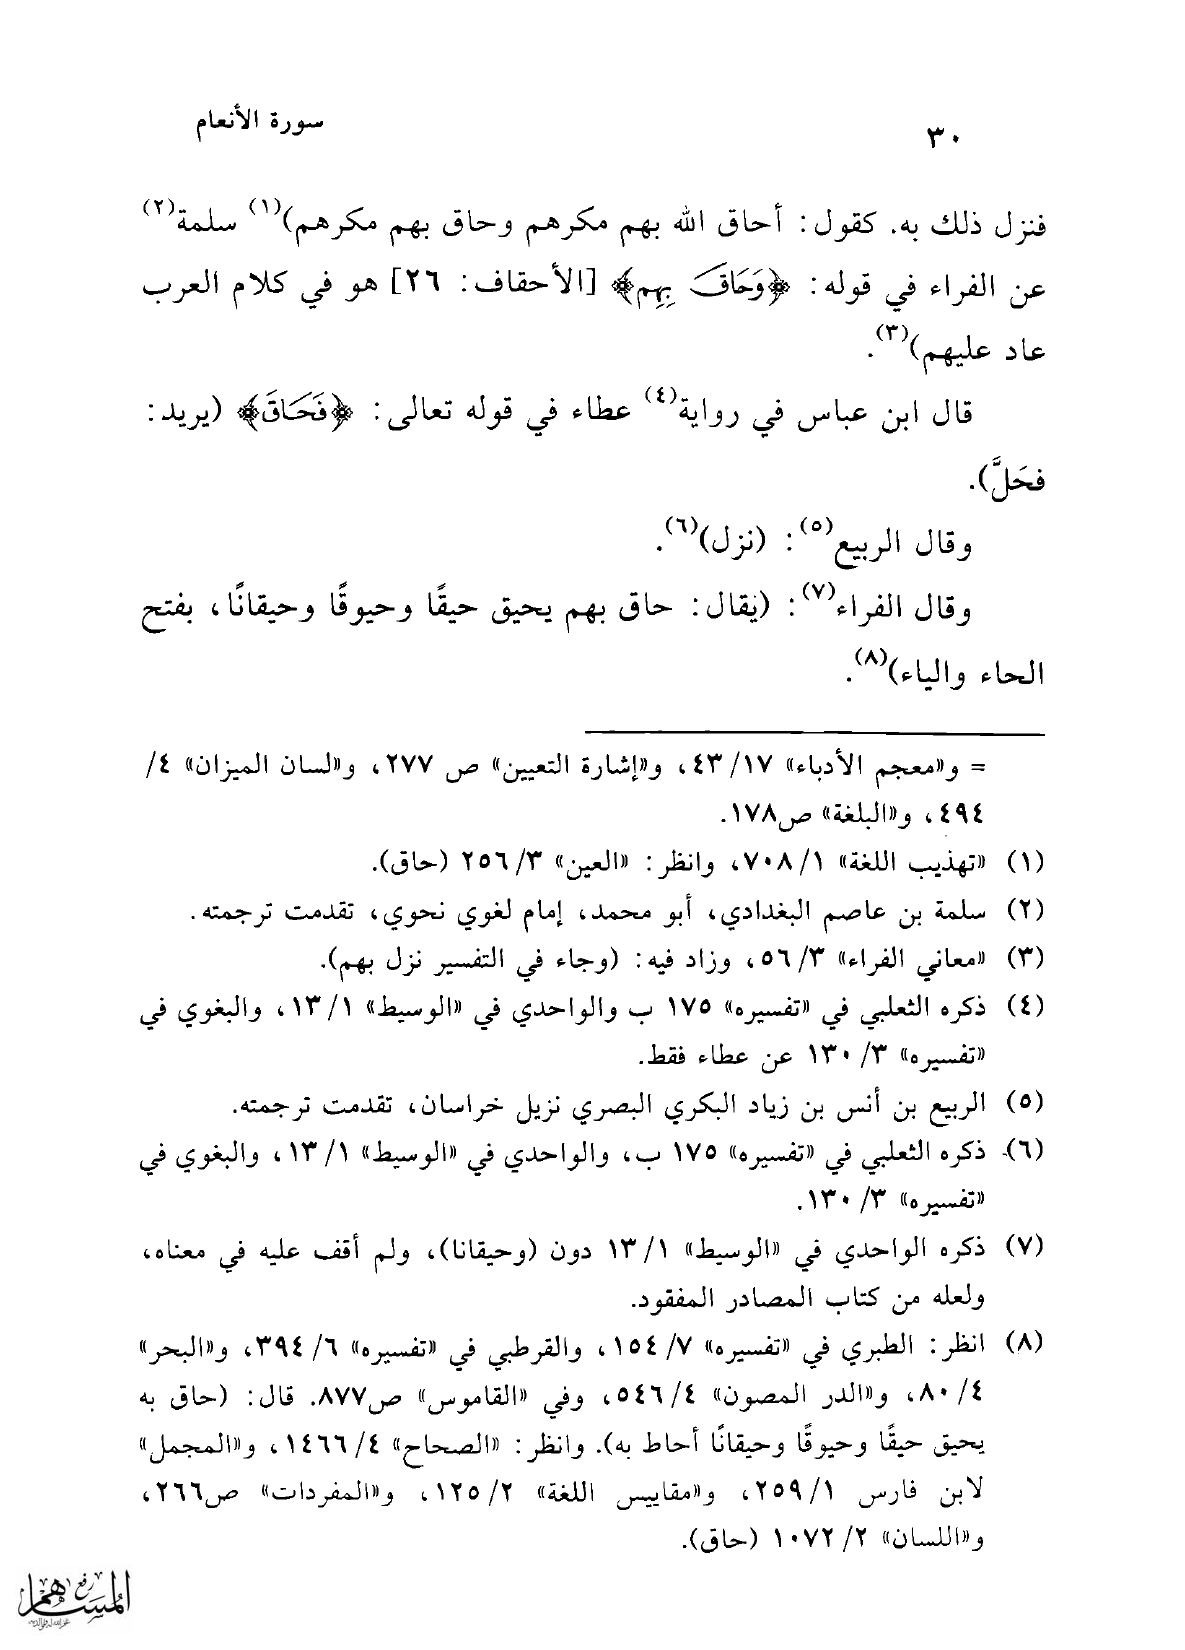 ٣٠
سورة الأنعام
فنزل ذلك به. كقول: أحاق الله بهم مكرهم وحاق بهم مكرهم)(١) سلمة(٢)
عن الفراء في قوله: ﴿وَحَاقَ بِهِم﴾ [الأحقاف: ٢٦] هو في كلام العرب
عاد عليهم)(٣).
قال ابن عباس في رواية(٤) عطاء في قوله تعالى: ﴿فَحَاقَ﴾ (يريد:
فحَلَّ).
وقال الربيع(٥): (نزل)(٦).
وقال الفراء(٧): (يقال: حاق بهم يحيق حيقًا وحيوقًا وحيقانًا، بفتح
الحاء والياء)(٨).
= و«معجم الأدباء» ١٧/ ٤٣، و«إشارة التعيين» ص ٢٧٧، و«لسان الميزان» ٤/
٤٩٤، و«البلغة» ص١٧٨.
(١) «تهذيب اللغة» ١/ ٧٠٨، وانظر: «العين» ٣/ ٢٥٦ (حاق).
(٢) سلمة بن عاصم البغدادي، أبو محمد، إمام لغوي نحوي، تقدمت ترجمته.
(٣) «معاني الفراء» ٣/ ٥٦، وزاد فيه: (وجاء في التفسير نزل بهم).
(٤) ذكره الثعلبي في «تفسيره» ١٧٥ ب والواحدي في «الوسيط» ١/ ١٣، والبغوي في
«تفسيره» ٣/ ١٣٠ عن عطاء فقط.
(٥) الربيع بن أنس بن زياد البكري البصري نزيل خراسان، تقدمت ترجمته.
(٦) ذكره الثعلبي في «تفسيره» ١٧٥ ب، والواحدي في «الوسيط» ١/ ١٣، والبغوي في
«تفسيره» ٣/ ١٣٠.
(٧) ذكره الواحدي في «الوسيط» ١/ ١٣ دون (وحيقانا)، ولم أقف عليه في معناه،
ولعله من كتاب المصادر المفقود.
(٨) انظر: الطبري في «تفسيره» ٧/ ١٥٤، والقرطبي في «تفسيره» ٦/ ٣٩٤، و«البحر»
٤/ ٨٠، و«الدر المصون» ٤/ ٥٤٦، وفي «القاموس» ص٨٧٧. قال: (حاق به
يحيق حيقًا وحيوقًا وحيقانًا أحاط به). وانظر: «الصحاح» ٤/ ١٤٦٦، و«المجمل»
لابن فارس ١/ ٢٥٩، و«مقاييس اللغة» ٢/ ١٢٥، و«المفردات» ص٢٦٦،
و«اللسان» ٢/ ١٠٧٢ (حاق).